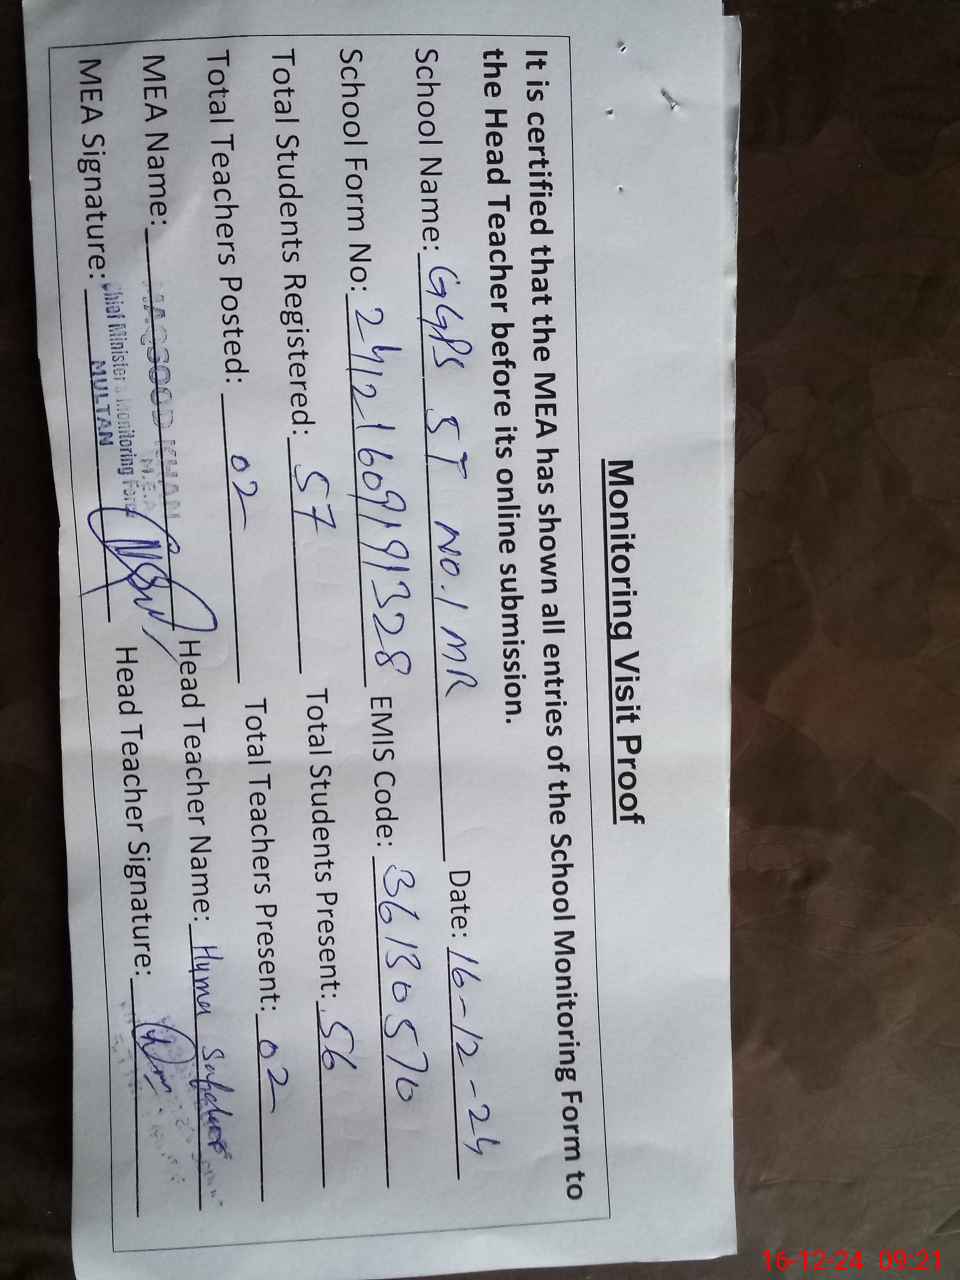 Monitoring Visit Proof
It is certified that the MEA has shown all entries of the School Monitoring Form to
the Head Teacher before its online submission.
School Name: GGPS ST NO.1 MR Date: 16-12-24
School Form No: 24121609191328 EMIS Code: 36130570
Total Students Registered: 57 Total Students Present: 56
Total Teachers Posted: 02 Total Teachers Present: 02
MEA Name: MAQSOOD KHAN Head Teacher Name: Hyma
M.E.A
Chief Minister's Monitoring Force
MULTAN
MEA Signature: Head Teacher Signature:
16-12-24 09:21